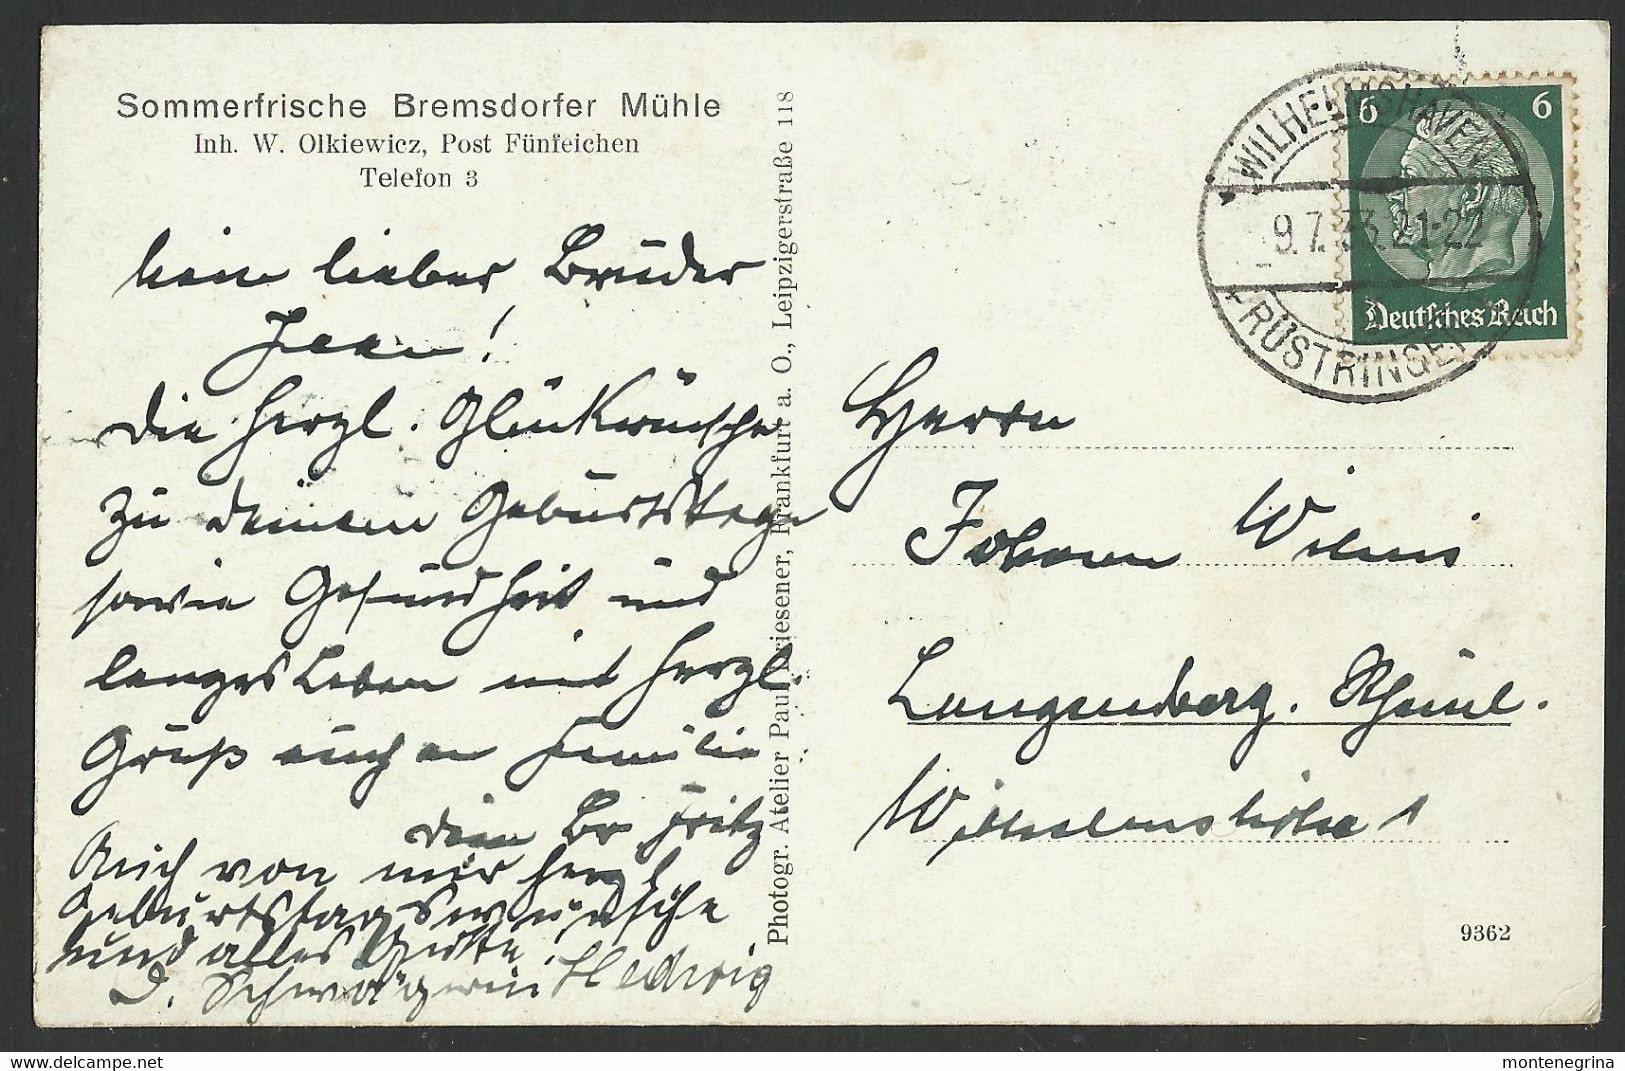 Sommerfrische Bremsdorfer Mühle
Inh. W. Olkiewicz, Post Fünfeichen
Telefon 3
Mein lieber Bruder
Jean!
Die herzl. Glückwünsche
zu Deinem Geburtstage
sowie Gesundheit und
langes Leben mit herzl.
Gruß auch an Familie
Dein Br Fritz
Auch von mir herzl
Geburtstagswünsche
und alles Gute!
D. Schwägerin Hedwig
Photogr. Atelier Paul Griesener, Frankfurt a. O., Leipzigerstraße 118
WILHELMSHAVEN
9.7.33.21-22
RÜSTRINGEN
6 6
Deutsches Reich
Herrn
Johann
Langenberg. Rheinl.
1
9362
montenegrina